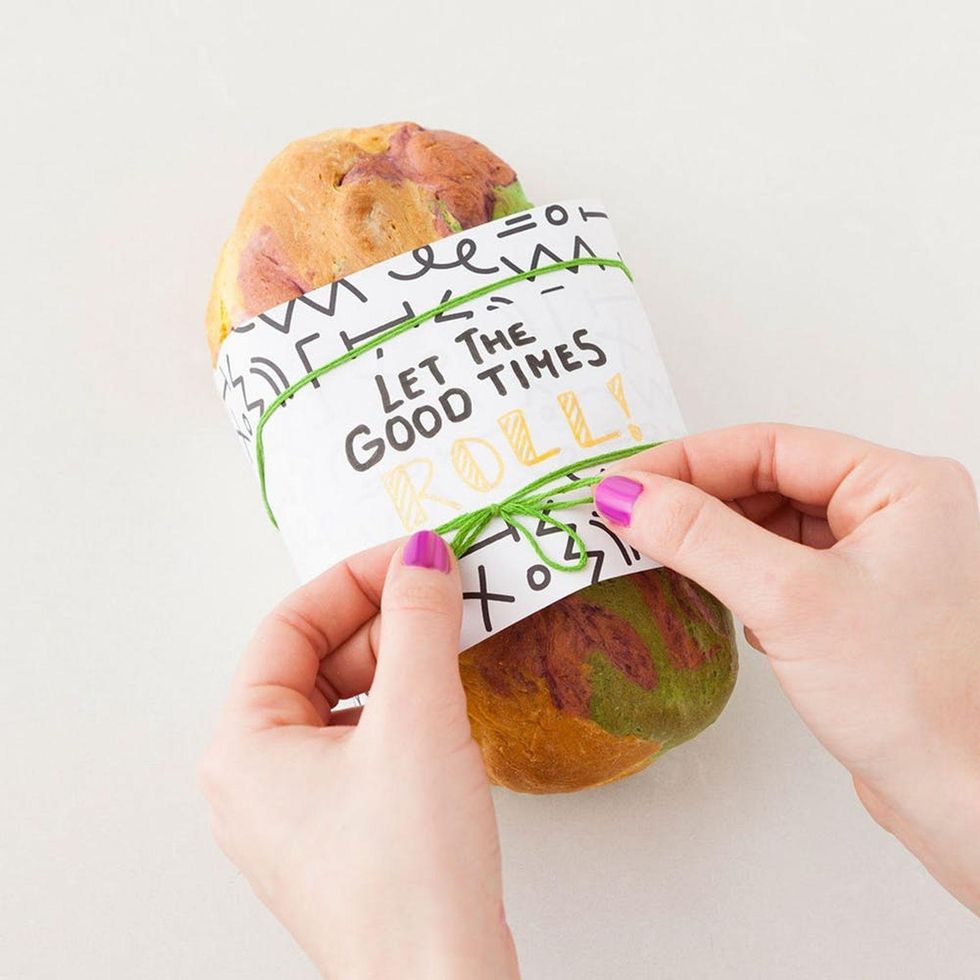 LET THE
GOOD TIMES
ROLL!